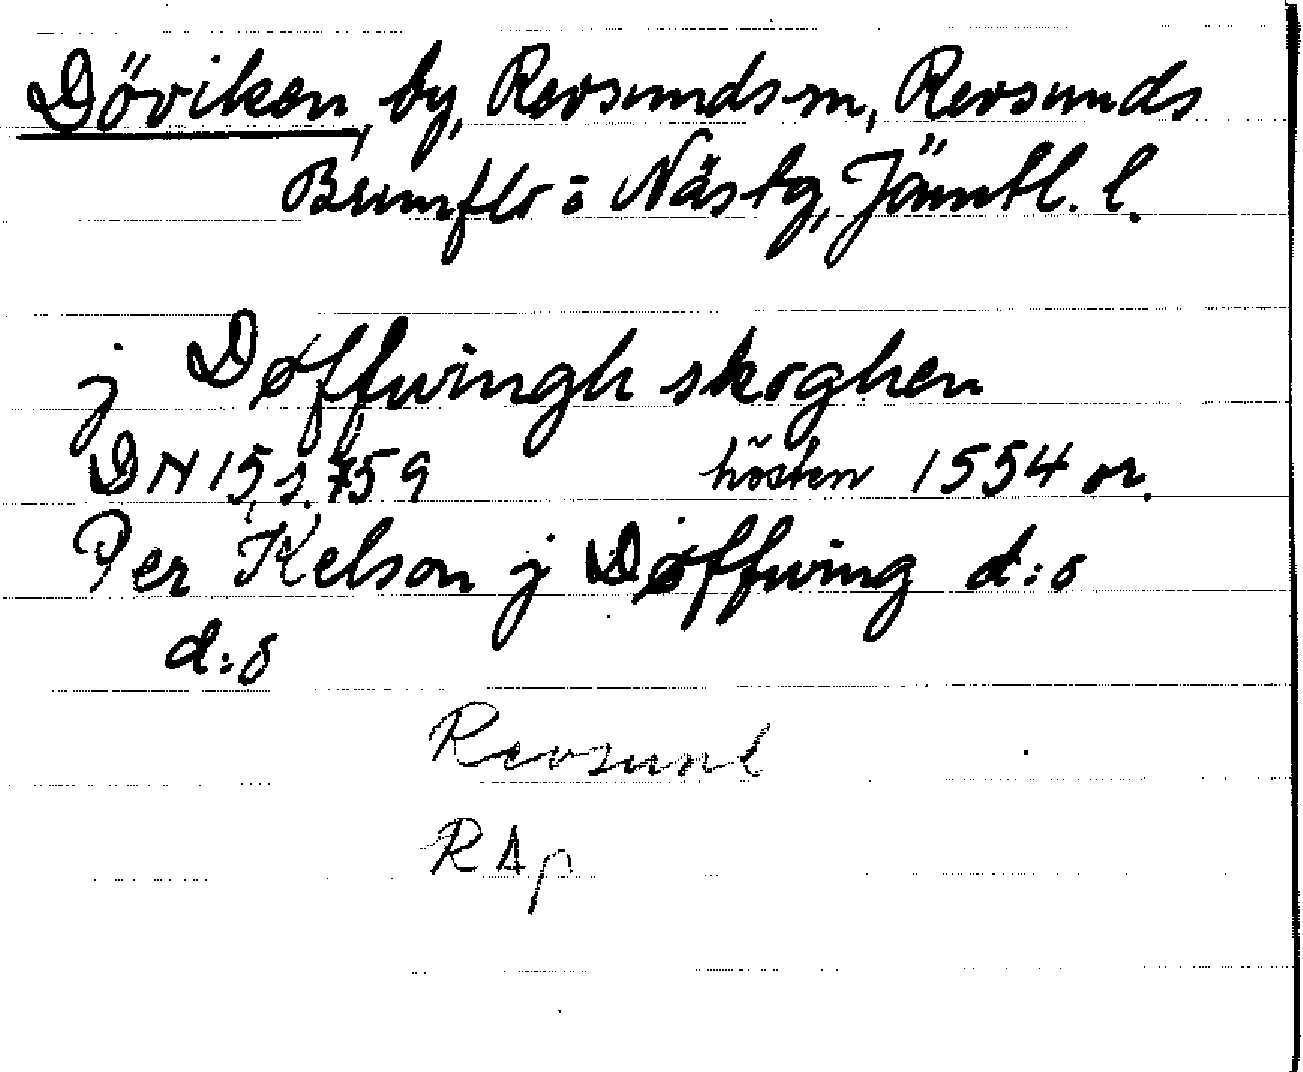 Döviken, by, Revsunds sn, Revsunds
Brunflo o Näs tg, Jämtl. l.
j Døffwingh skoghen
DN 15, s. 759 hösten 1554 or.
Per Kelson j Døffwing d:o
d:o
Revsund
RAp